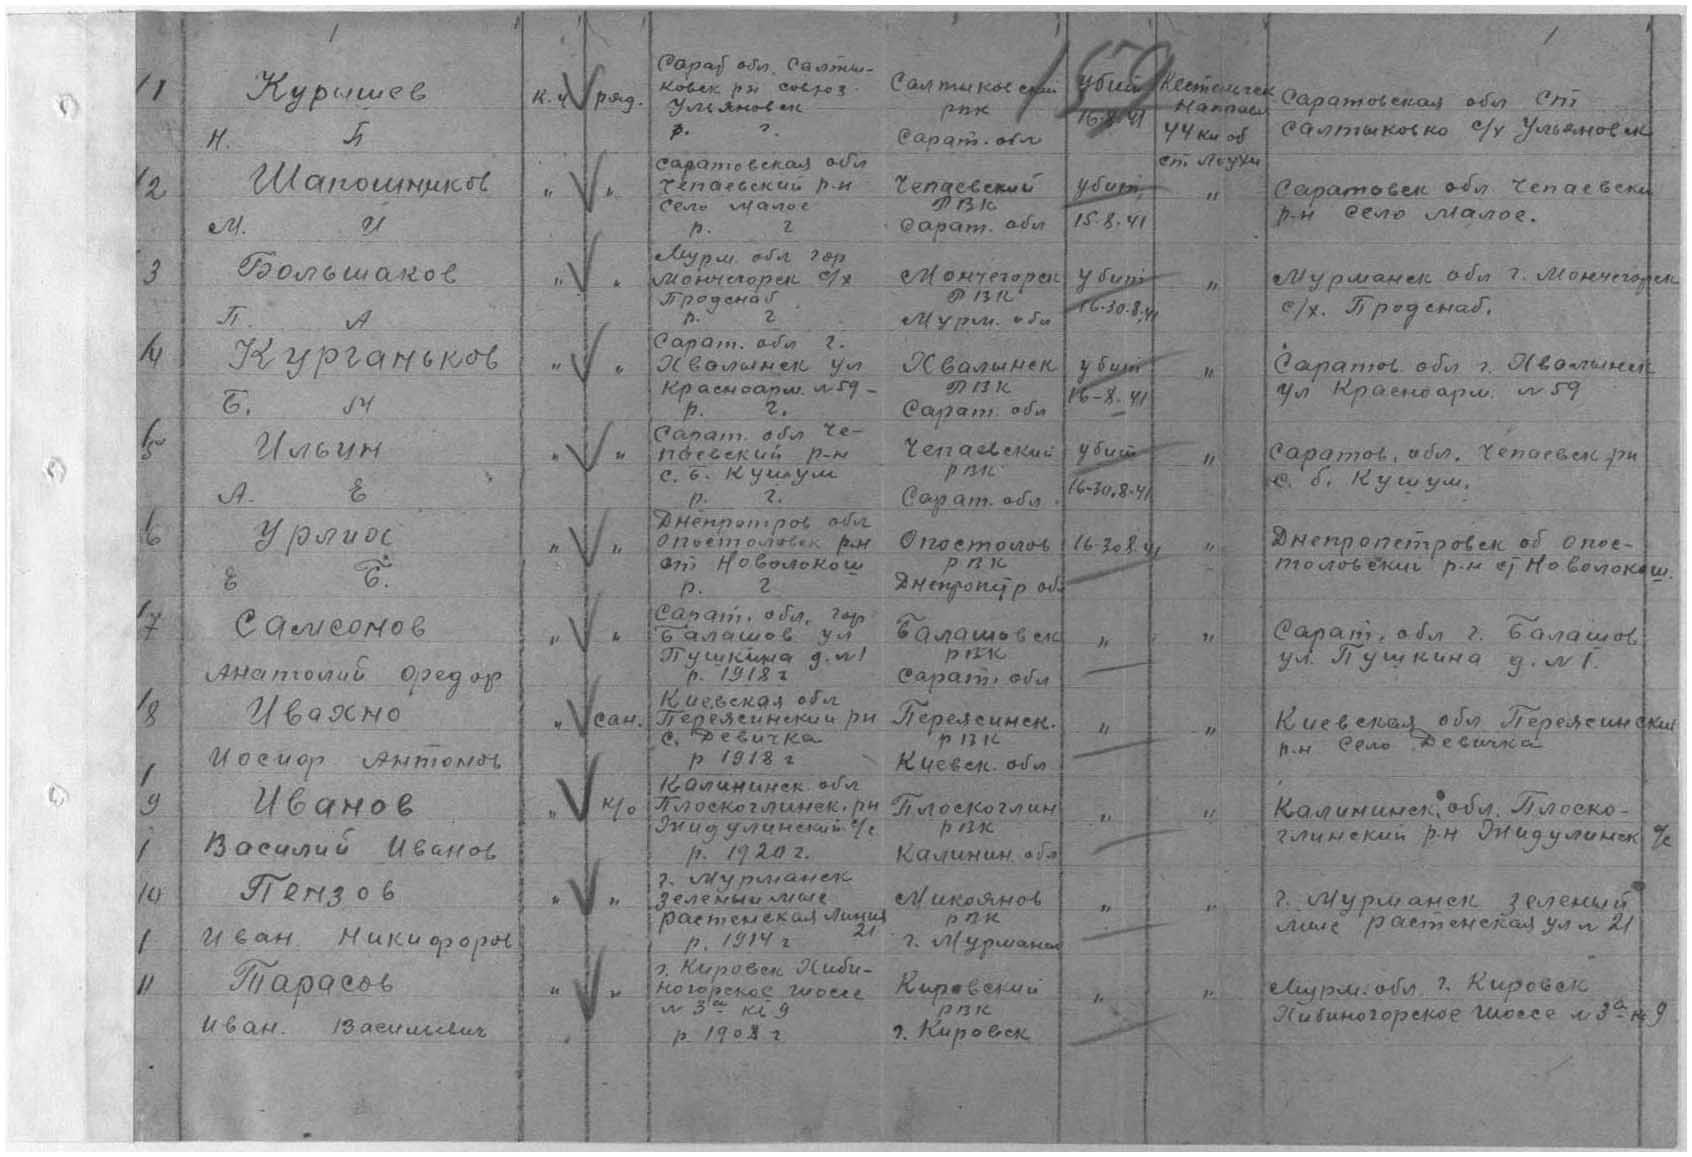 159
1 Курышев к.ч ряд. Сарат обл. Салты- Салтыковский убит Кестеньгск
ковск рн совхоз рпк 16-8-41 направ Саратовская обл ст
Ульяновск 44 км от Салтыковко с/х Ульяновск
Н. П р. г. Сарат. обл ст. Лоухи
2 Шапошников " " Саратовская обл
Чепаевский р-н Чепаевский убит " Саратовск обл. Чепаевски
село малое РВК р-н село малое.
М. И р. г Сарат. обл 15-8-41
3 Большаков " " Мурм. обл гор
Мончегорск с/х Мончегорск убит " Мурманск обл г. Мончегорск
Продснаб РВК 16-30.8.41 с/х. Продснаб.
П. А р. г. Мурм. обл
4 Курганьков " " Сарат. обл г.
Хвалынск ул Хвалынск убит " Саратов. обл г. Хвалынск
Красноарм. №59 РВК 16-8-41 ул Красноарм. №59
Б. М р. г. Сарат. обл
5 Ильин " " Сарат. обл Че-
паевский р-н Чепаевский убит " Саратов. обл. Чепаевск рн
с. б. Кушум рвк с. б. Кушум.
А. Е р. г. Сарат. обл. 16-30.8-41
6 Урлих " " Днепротров обл
Опостоловск р.н Опостолов 16-30.8.41 " Днепропетровск об опос-
ст Новолокош рвк толовский р-н ст Новолокош.
Е Б. р. г Днепропетр обл
7 Самсонов " " Сарат. обл. гор
Балашов ул Балашовск " " Сарат. обл г. Балашов
Пушкина д. №1 рвк ул. Пушкина д. №1.
Анатолий Федор р. 1918 г Сарат. обл
8 Ивахно " сан. Киевская обл
Переясинский рн Переясинск. " " Киевская обл Переясинский
с. Девичка рвк р.н село Девичка
Иосиф Антонов р 1918 г Киевск. обл
9 Иванов " к/о Калининск. обл
Плоскоглинск. рн Плоскоглин " " Калининск. обл. Плоско-
Жидулинский с/с рвк глинский р-н Жидулинск с/с
Василий Иванов р. 1920 г. Калинин. обл
10 Пензов " " г. Мурманск
зеленый мыс Микоянов " " г. Мурманск зеленый
растенская линия 21 рпк мыс растенская ул № 21
Иван Никифоров р. 1914 г г. Мурманск
11 Тарасов " " г. Кировск Хиби-
ногорское шоссе Кировский " " Мурм. обл. г. Кировск
№ 3а к 9 рвк Хибиногорское шоссе № 3а к 9
Иван. Васильевич р 1908 г г. Кировск